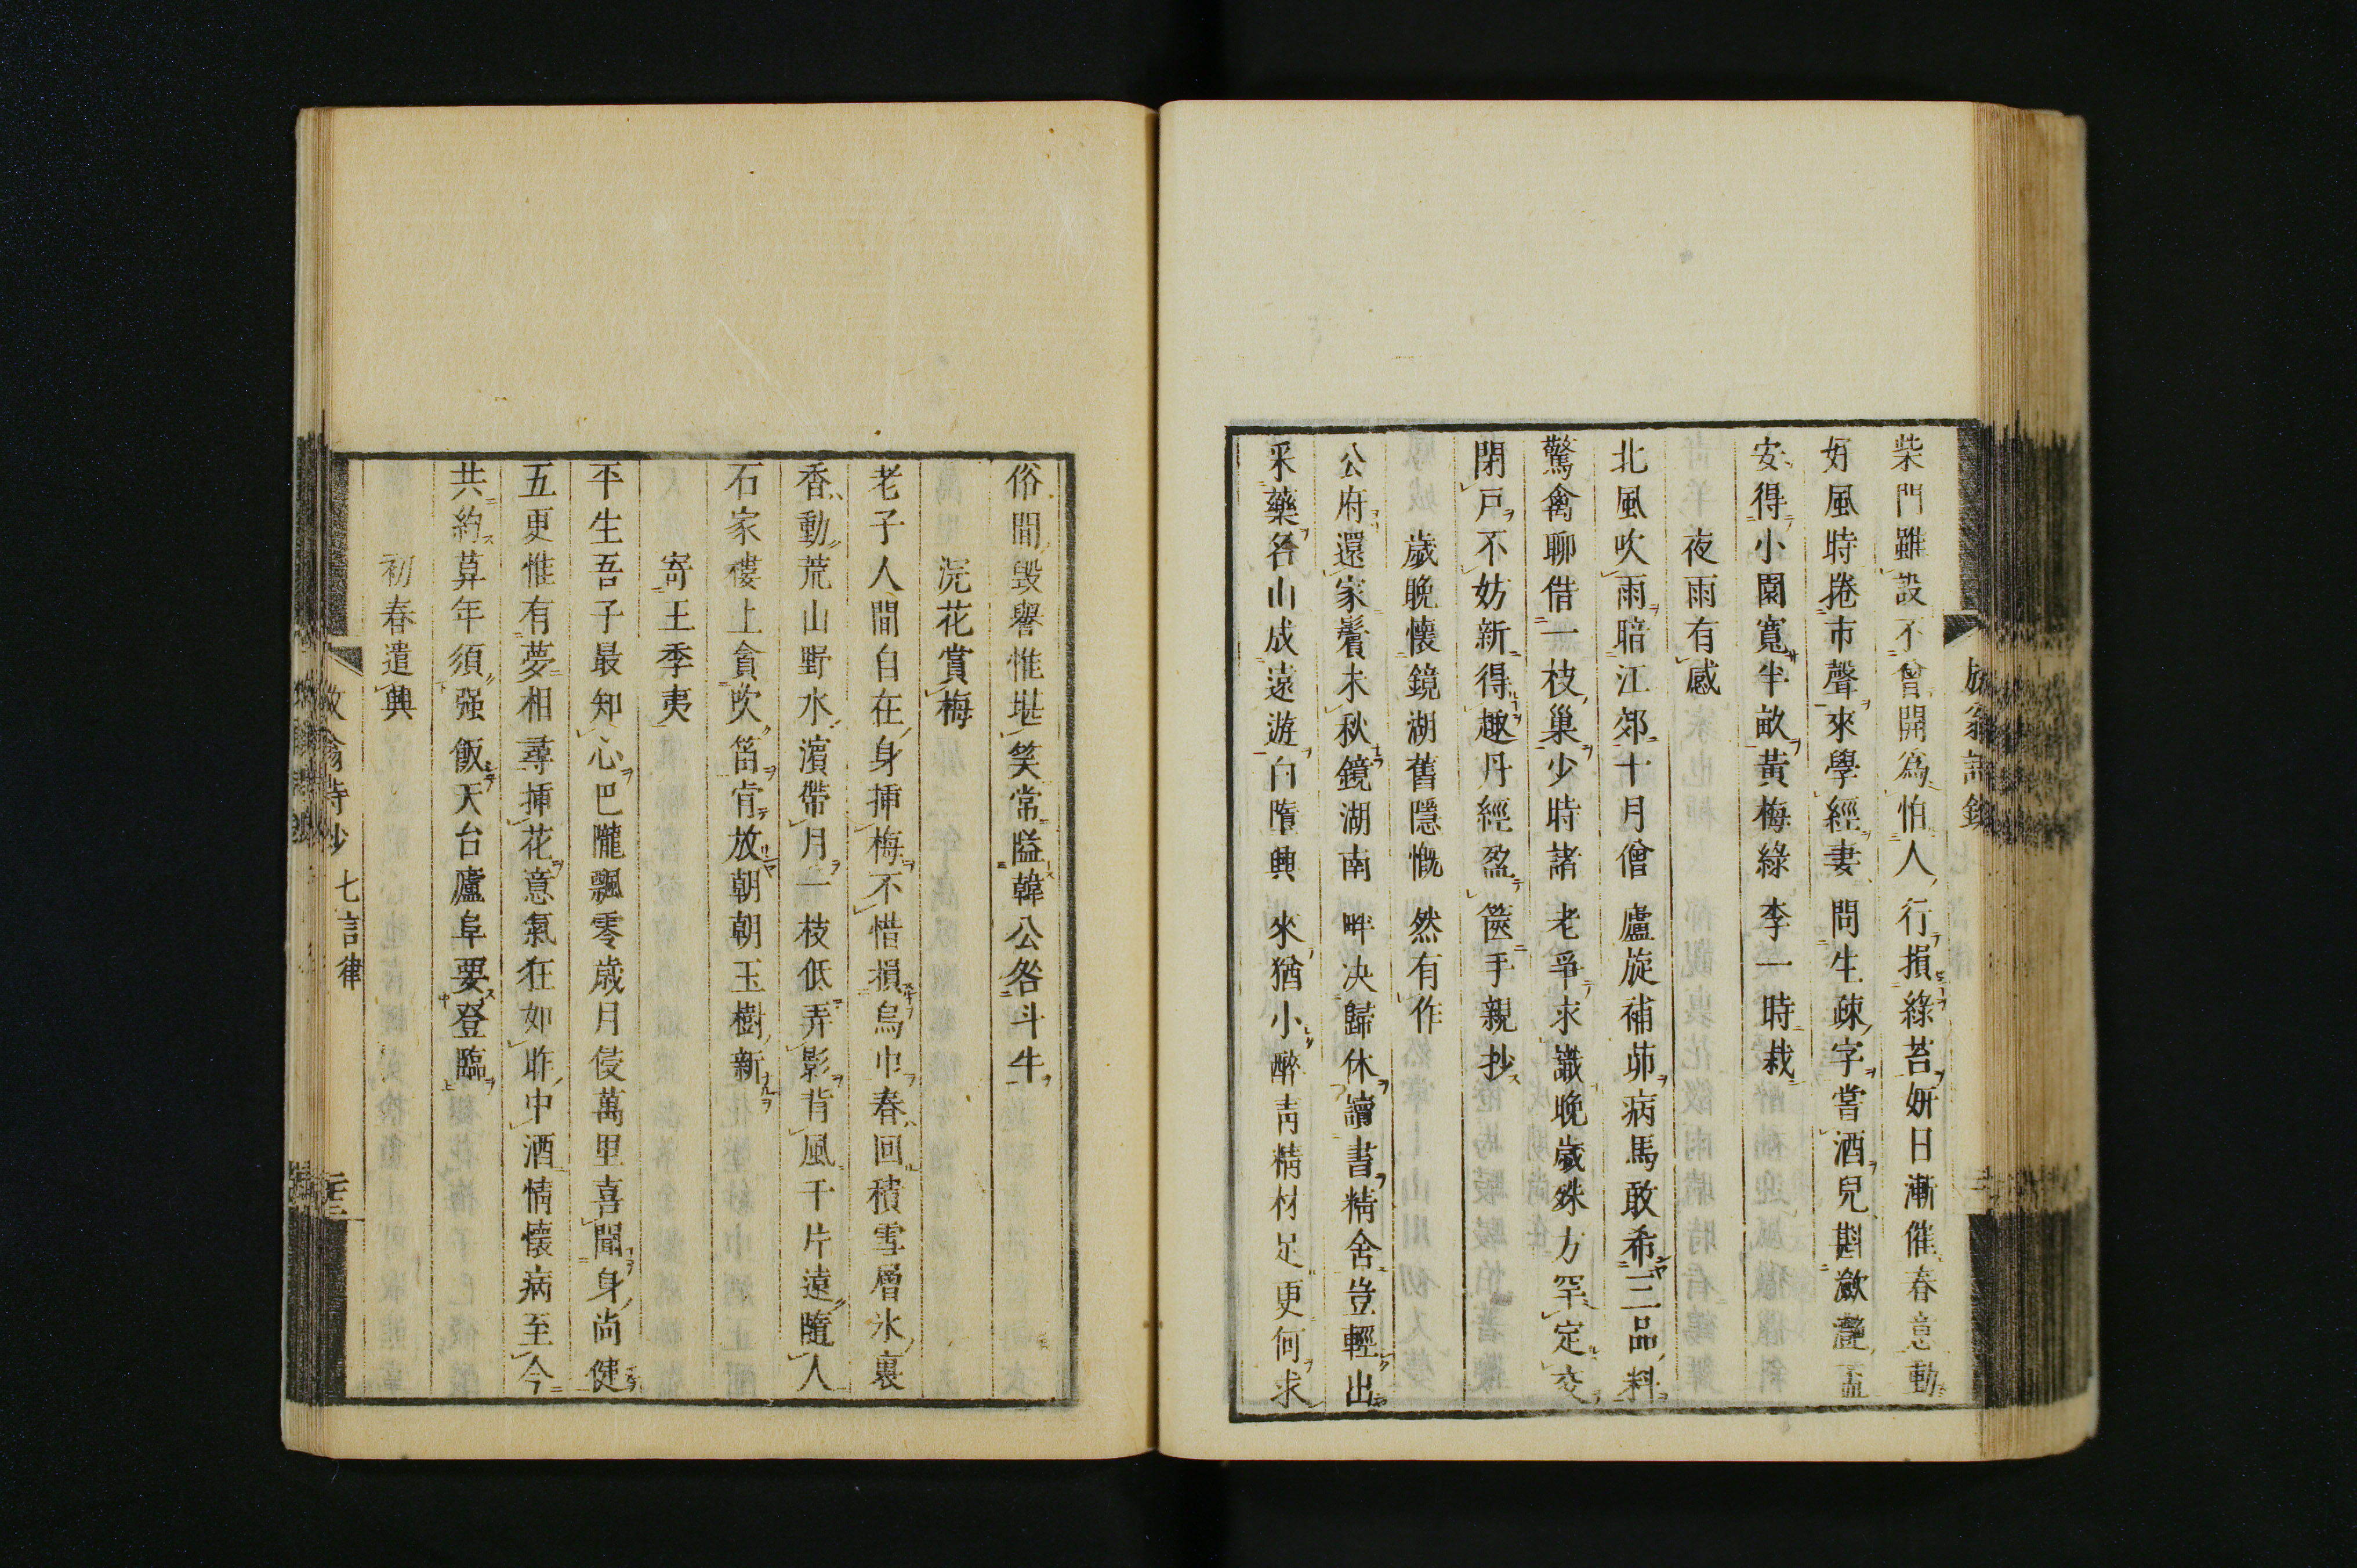 柴門雖設不曾開爲怕人行損綠苔姸日漸催春意動
好風時捲市聲來學經妻問生疎字嘗酒兒斟瀲灧盃
安得小園寬半畝黃梅綠李一時栽
夜雨有感
北風吹雨暗江郊十月僧廬旋補茆病馬敢希三品料
驚禽聊借一枝巢少時諸老爭求識晚歲殊方罕定交
閉戸不妨新得趣丹經盈篋手親抄
歲晚懷鏡湖舊隱慨然有作
公府還家鬢未秋鏡湖南畔决歸休讀書精舍豈輕出
采藥名山成遠游白墮興來猶小醉靑精材足更何求
俗間毀譽惟堪笑常隘韓公咎斗牛
浣花賞梅
老子人間自在身插梅不惜損烏巾春回積雪層氷裏
香動荒山野水濱帶月一枝低弄影背風千片遠隨人
石家樓上貪吹笛肯放朝朝玉樹新
寄王季夷
平生吾子最知心巴隴飄零歲月侵萬里喜聞身尚健
五更惟有夢相尋插花意氣狂如昨中酒情懷病至今
共約莫年須强飯天台廬阜要登臨
初春遣興
放翁詩鈔 七言律